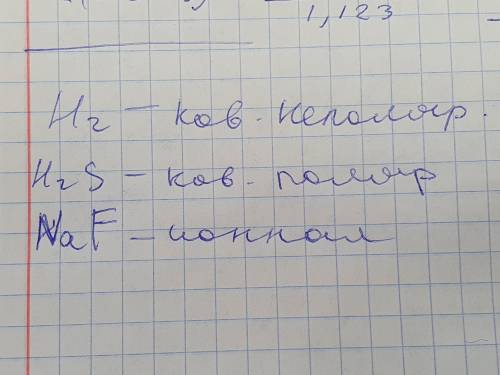 1,123
H₂ – ков. неполяр.
H₂S – ков. поляр
NaF – ионная